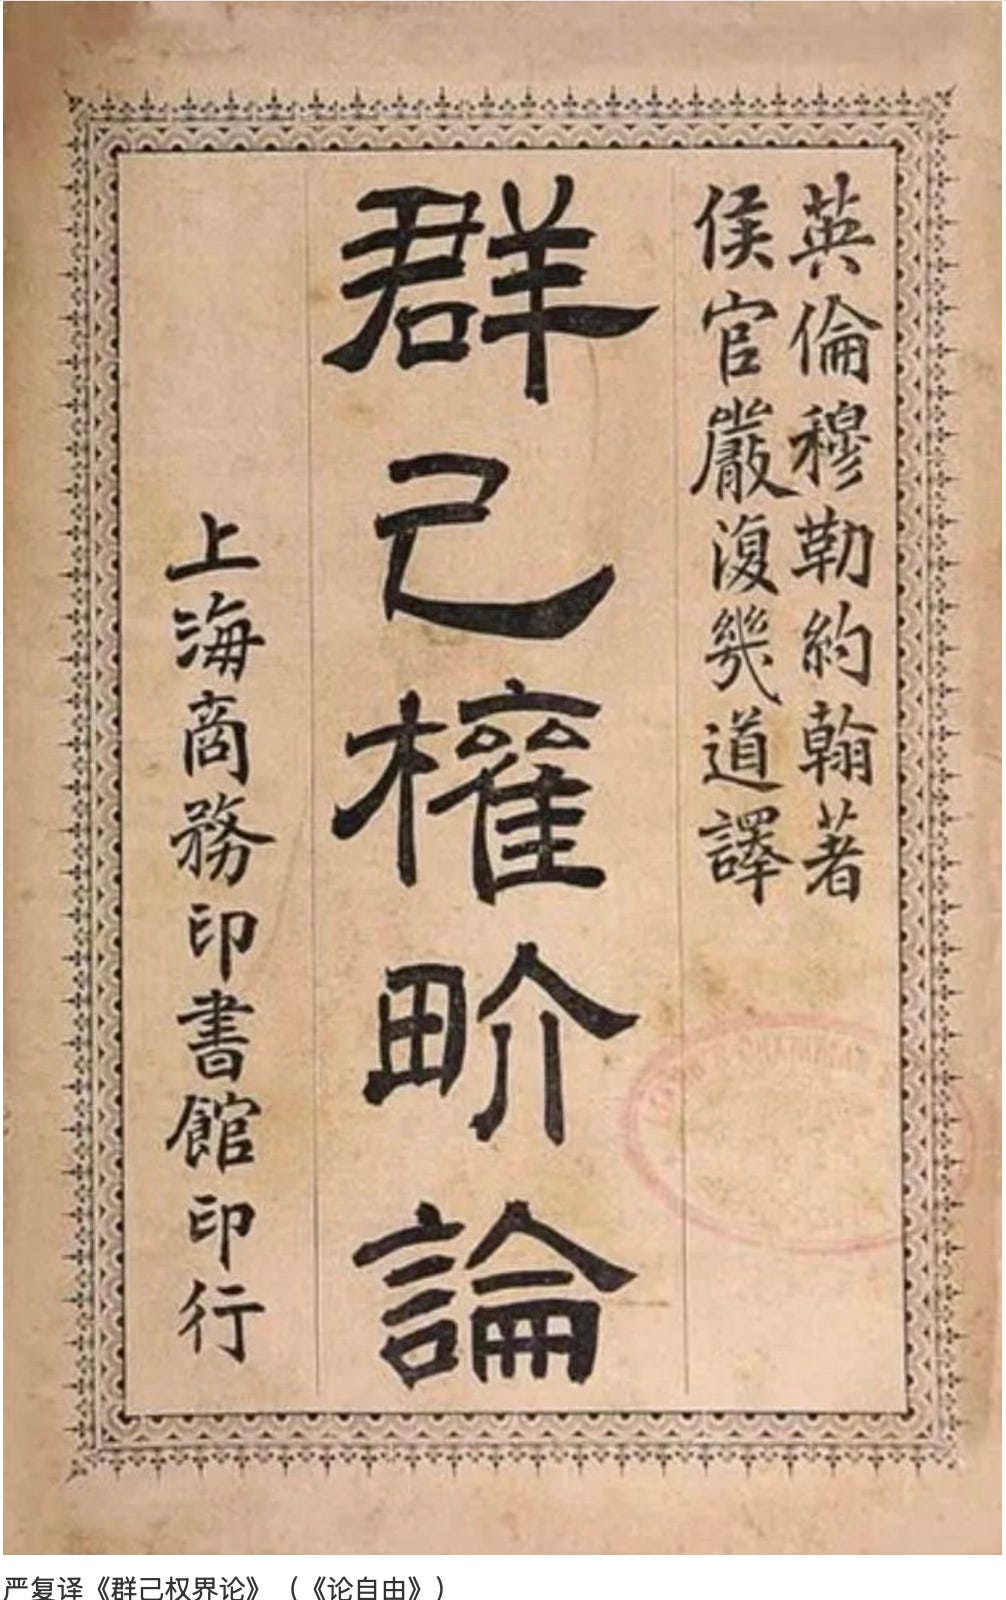 英倫穆勒約翰著
侯官嚴復幾道譯
羣己權畍論
上海商務印書館印行
严复译《群己权界论》（《论自由》）